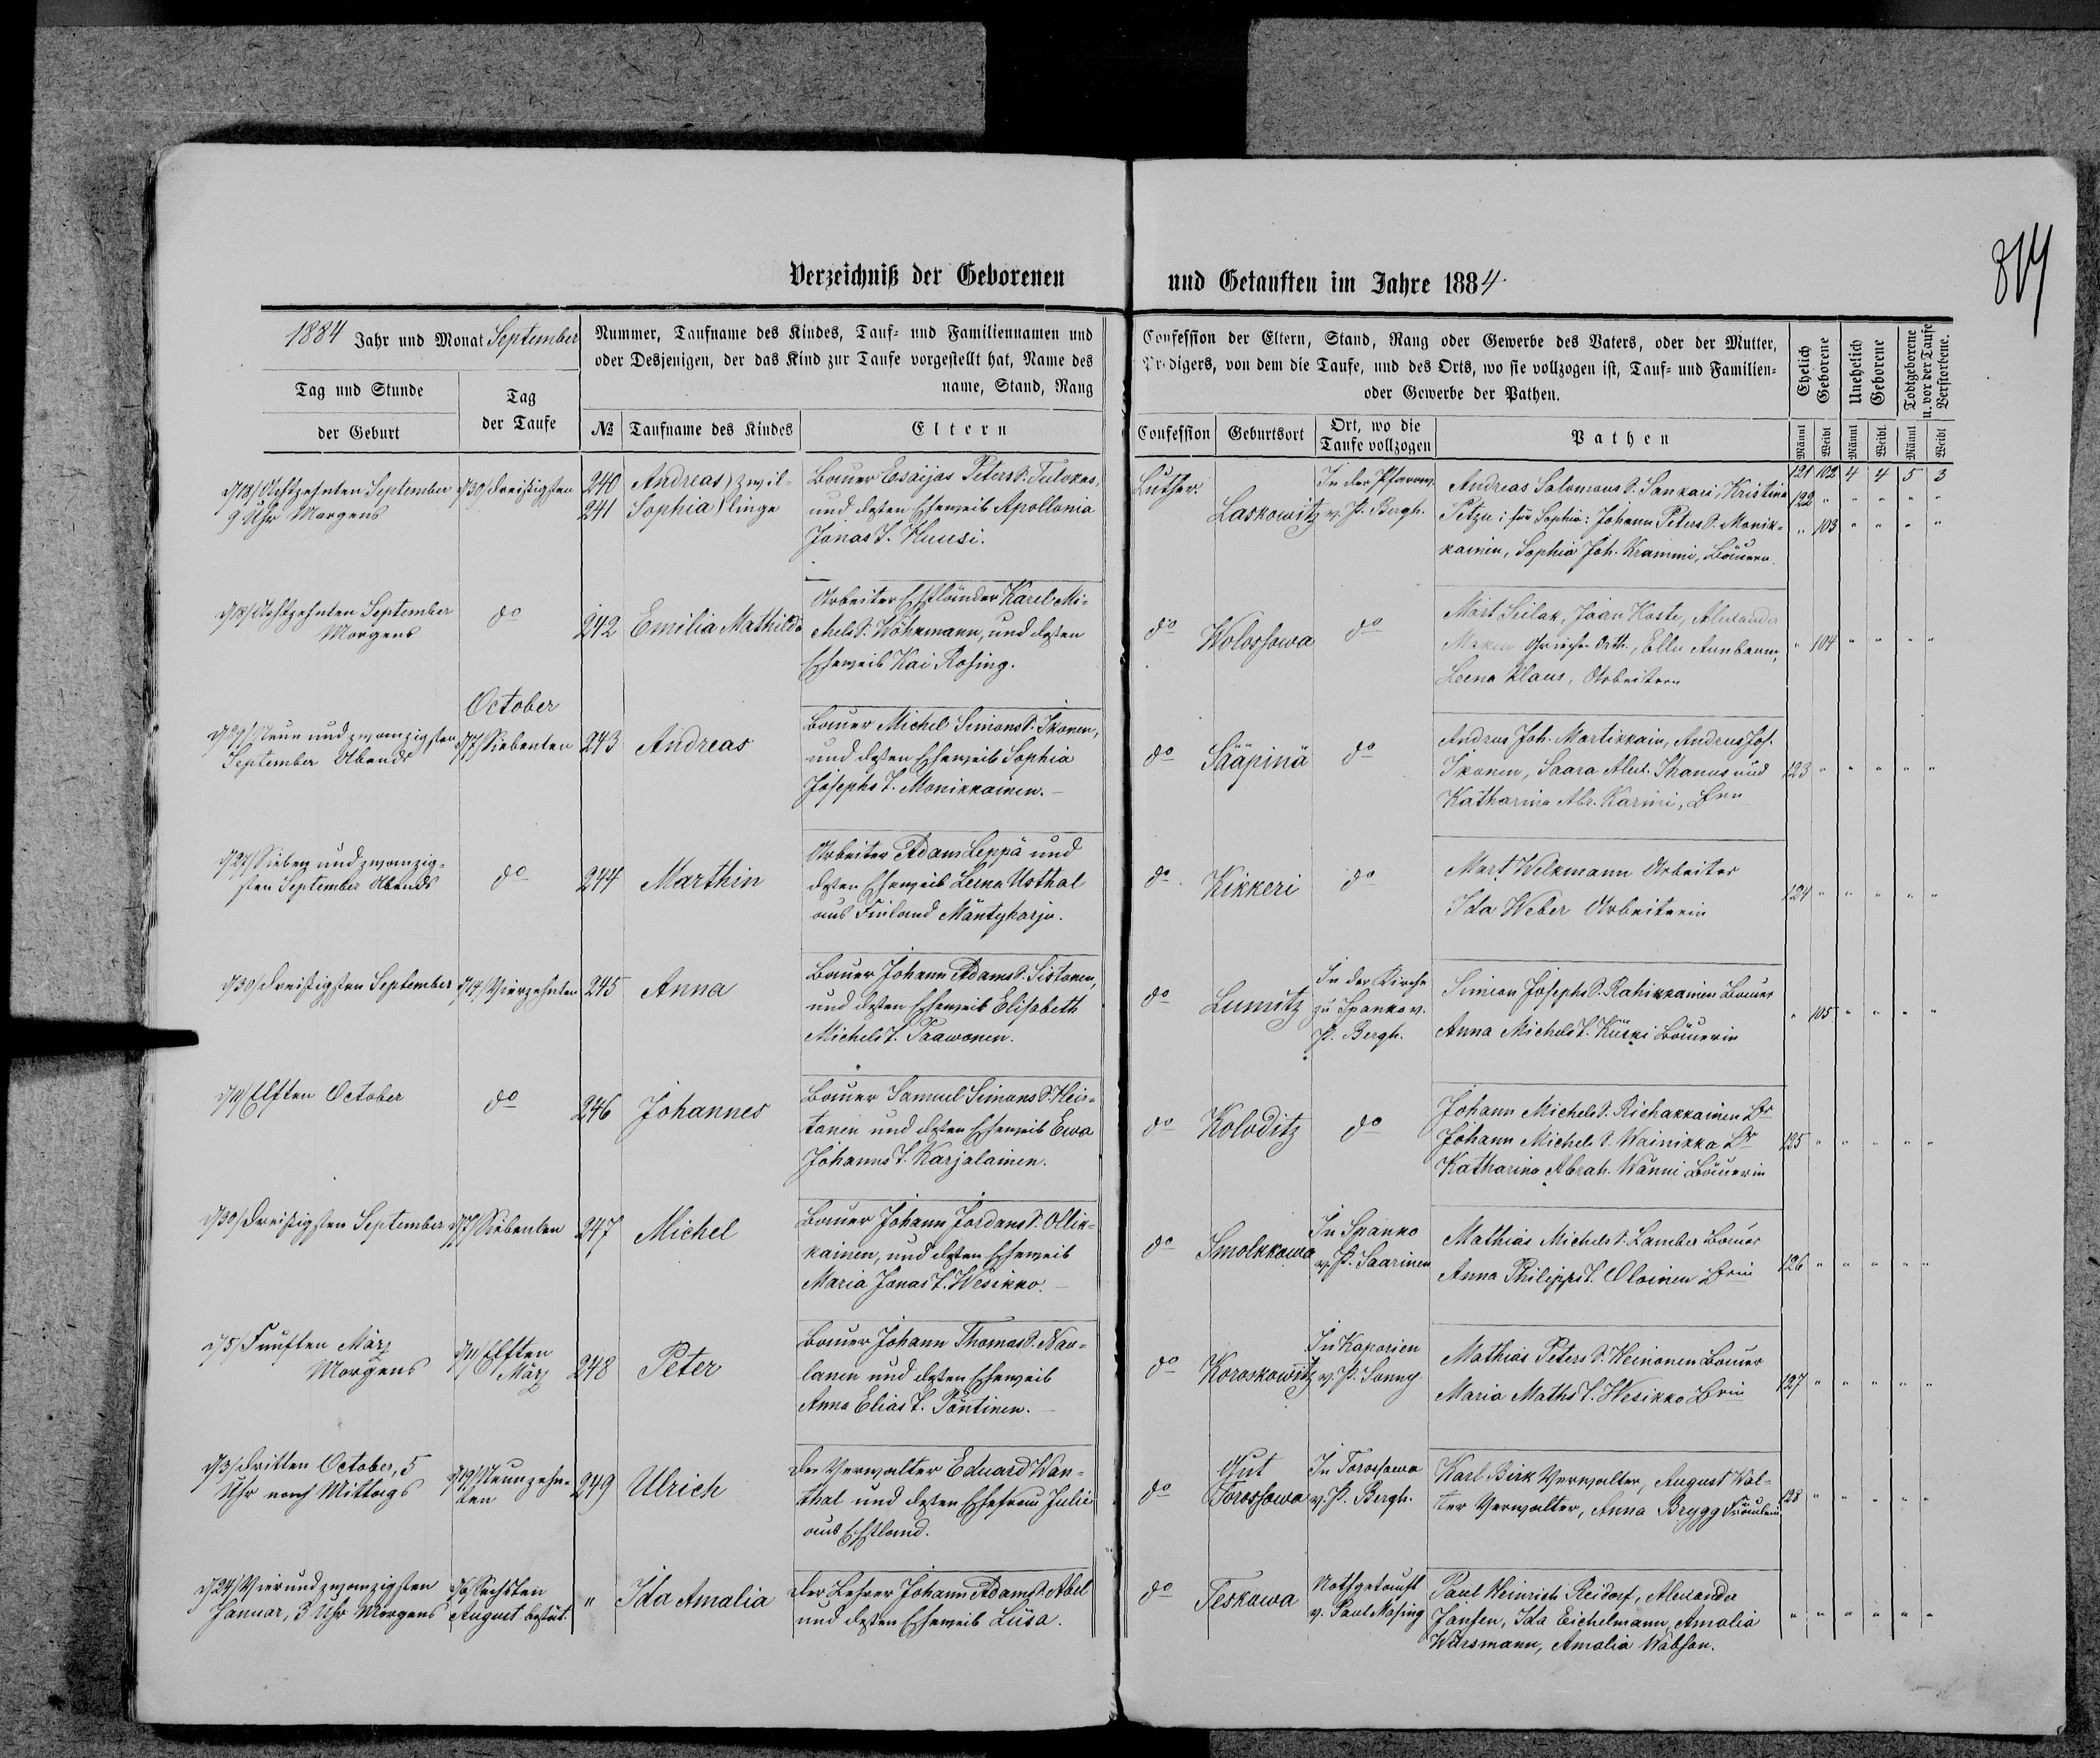 814
Verzeichniß der Geborenen und Getauften im Jahre 1884.
1884 Jahr und Monat September
Nummer, Taufname des Kindes, Tauf- und Familiennamen und
oder Desjenigen, der das Kind zur Taufe vorgestellt hat, Name des
name, Stand, Rang
Tag und Stunde
der Geburt
Tag
der Taufe
№
Taufname des Kindes
Eltern
Confession der Eltern, Stand, Rang oder Gewerbe des Vaters, oder der Mutter,
Predigers, von dem die Taufe, und des Orts, wo sie vollzogen ist, Tauf- und Familien-
oder Gewerbe der Pathen.
Confession
Geburtsort
Ort, wo die
Taufe vollzogen
Pathen
Ehelich
Geborene
Unehelich
Geborene
Todtgeborene
u. vor der Taufe
Verstorbene.
Männl Weibl Männl Weibl. Männl Weibl
121 102 4 4 5 3
d/18/ Achtzehnten September
9 Uhr Morgens
d/30/ dreißigsten
240 Andreas } Zwil-
241 Sophia } linge
Bauer Esaijas Peters S. Tulokas,
und deßen Eheweib Apollonia
Jonas T. Huusi.
Luther.
Laskowitz
In der Pfarrw.
v. P. Bergh.
Andreas Salomons S. Sankari, Kristina
Petzu; für Sophia: Johann Peters S. Monik-
kainen, Sophia Joh. Krammi, Bäuern.
122 " " " " "
" 103 " " " "
d/18/ Achtzehnten September
Morgens
do
242 Emilia Mathilda
Arbeiter Ehstländer Karel Mi-
chels S. Wöhrmann, und deßen
Eheweib Kai Rosing.
do
Wolossowa
do
Mart Seilak, Jaan Koste, Alexander
Maken Griech. Orth., Ello Annbaum,
Leena Klaus, Arbeitern
" 104 " " " "
October
d/29/ Neun und zwanzigsten
September Abends
d/7/ Siebenten
243 Andreas
Bauer Michel Simons S. Ikonen,
und deßen Eheweib Sophia
Josephs T. Monikkainen.
do
Sääpinä
do
Andreas Joh. Martikkain, Andreas Jos.
Ikonen, Saara Alex. Ihanus und
Katharina Abr. Karini, Brn
123 " " " " "
d/27/ Sieben und zwanzig-
sten September Abends
do
244 Marthin
Arbeiter Adam Leppä und
deßen Eheweib Leena Usthal
aus Finland Mäntyharju.
do
Kikkeri
do
Mart Welkmann Arbeiter
Ida Weber Arbeiterin
124 " " " " "
d/30/ dreißigsten September
d/14/ Vierzehnten
245 Anna
Bauer Johann Adams S. Sistonen,
und deßen Eheweib Elisabeth
Michels T. Paawonen.
do
Lumitz
In der Kirche
zu Spanko v.
P. Bergh.
Simon Josephs S. Rahikkainen Bauer
Anna Michels T. Küski Bäuerin
" 105 " " " "
d/11/ Elften October
do
246 Johannes
Bauer Samuel Simons S. Heis-
tanen und deßen Eheweib Ewa
Johanns T. Karjalainen.
do
Koloditz
do
Johann Michels S. Richakkainen Br
Johann Michels S. Wainikka Br
Katharina Abrah. Wänni Bäuerin
125 " " " " "
d/30/ dreißigsten September
d/7/ Siebenten
247 Michel
Bauer Johann Jordans S. Ollik-
kainen, und deßen Eheweib
Maria Jonas T. Wesikko.
do
Smolkkowa
In Spanko
v. P. Saarinen
Mathias Michels S. Lamber Bauer
Anna Philipps T. Oloinen Brin
126 " " " " "
d/5/ Fünften März
Morgens
d/11/ Elften
März
248 Peter
Bauer Johann Thomas S. Nau-
lanen und deßen Eheweib
Anna Elias T. Pöntinen.
do
Koroskowitz
In Kaporien
v. P. Sonny.
Mathias Peters S. Heinonen Bauer
Maria Maths T. Wesikko Brin
127 " " " " "
d/3/ dritten October, 5
Uhr nach Mittags
d/19/ Neunzehn-
ten
249 Ulrich
der Verwalter Eduard Wan-
thal und deßen Ehefrau Julie
aus Ehstland.
do
Gut
Torossowa
In Torossowa
v. P. Bergh.
Karl Birk Verwalter, August Wal-
ter Verwalter, Anna Brygg Fräulein
128 " " " " "
d/24/ Vierundzwanzigsten
Januar, 3 Uhr Morgens
d/6/ Sechsten
August bestät.
" Ida Amalia
der Lehrer Johann Adams S. Abel
und deßen Eheweib Lüsa.
do
Teskowa
Nothgetauft
v. Paul Masing
Paul Heinrich Reidorf, Alexander
Jansen, Ida Eichelmann, Amalia
Wärsmann, Amalia Wabson.
" " " " " "